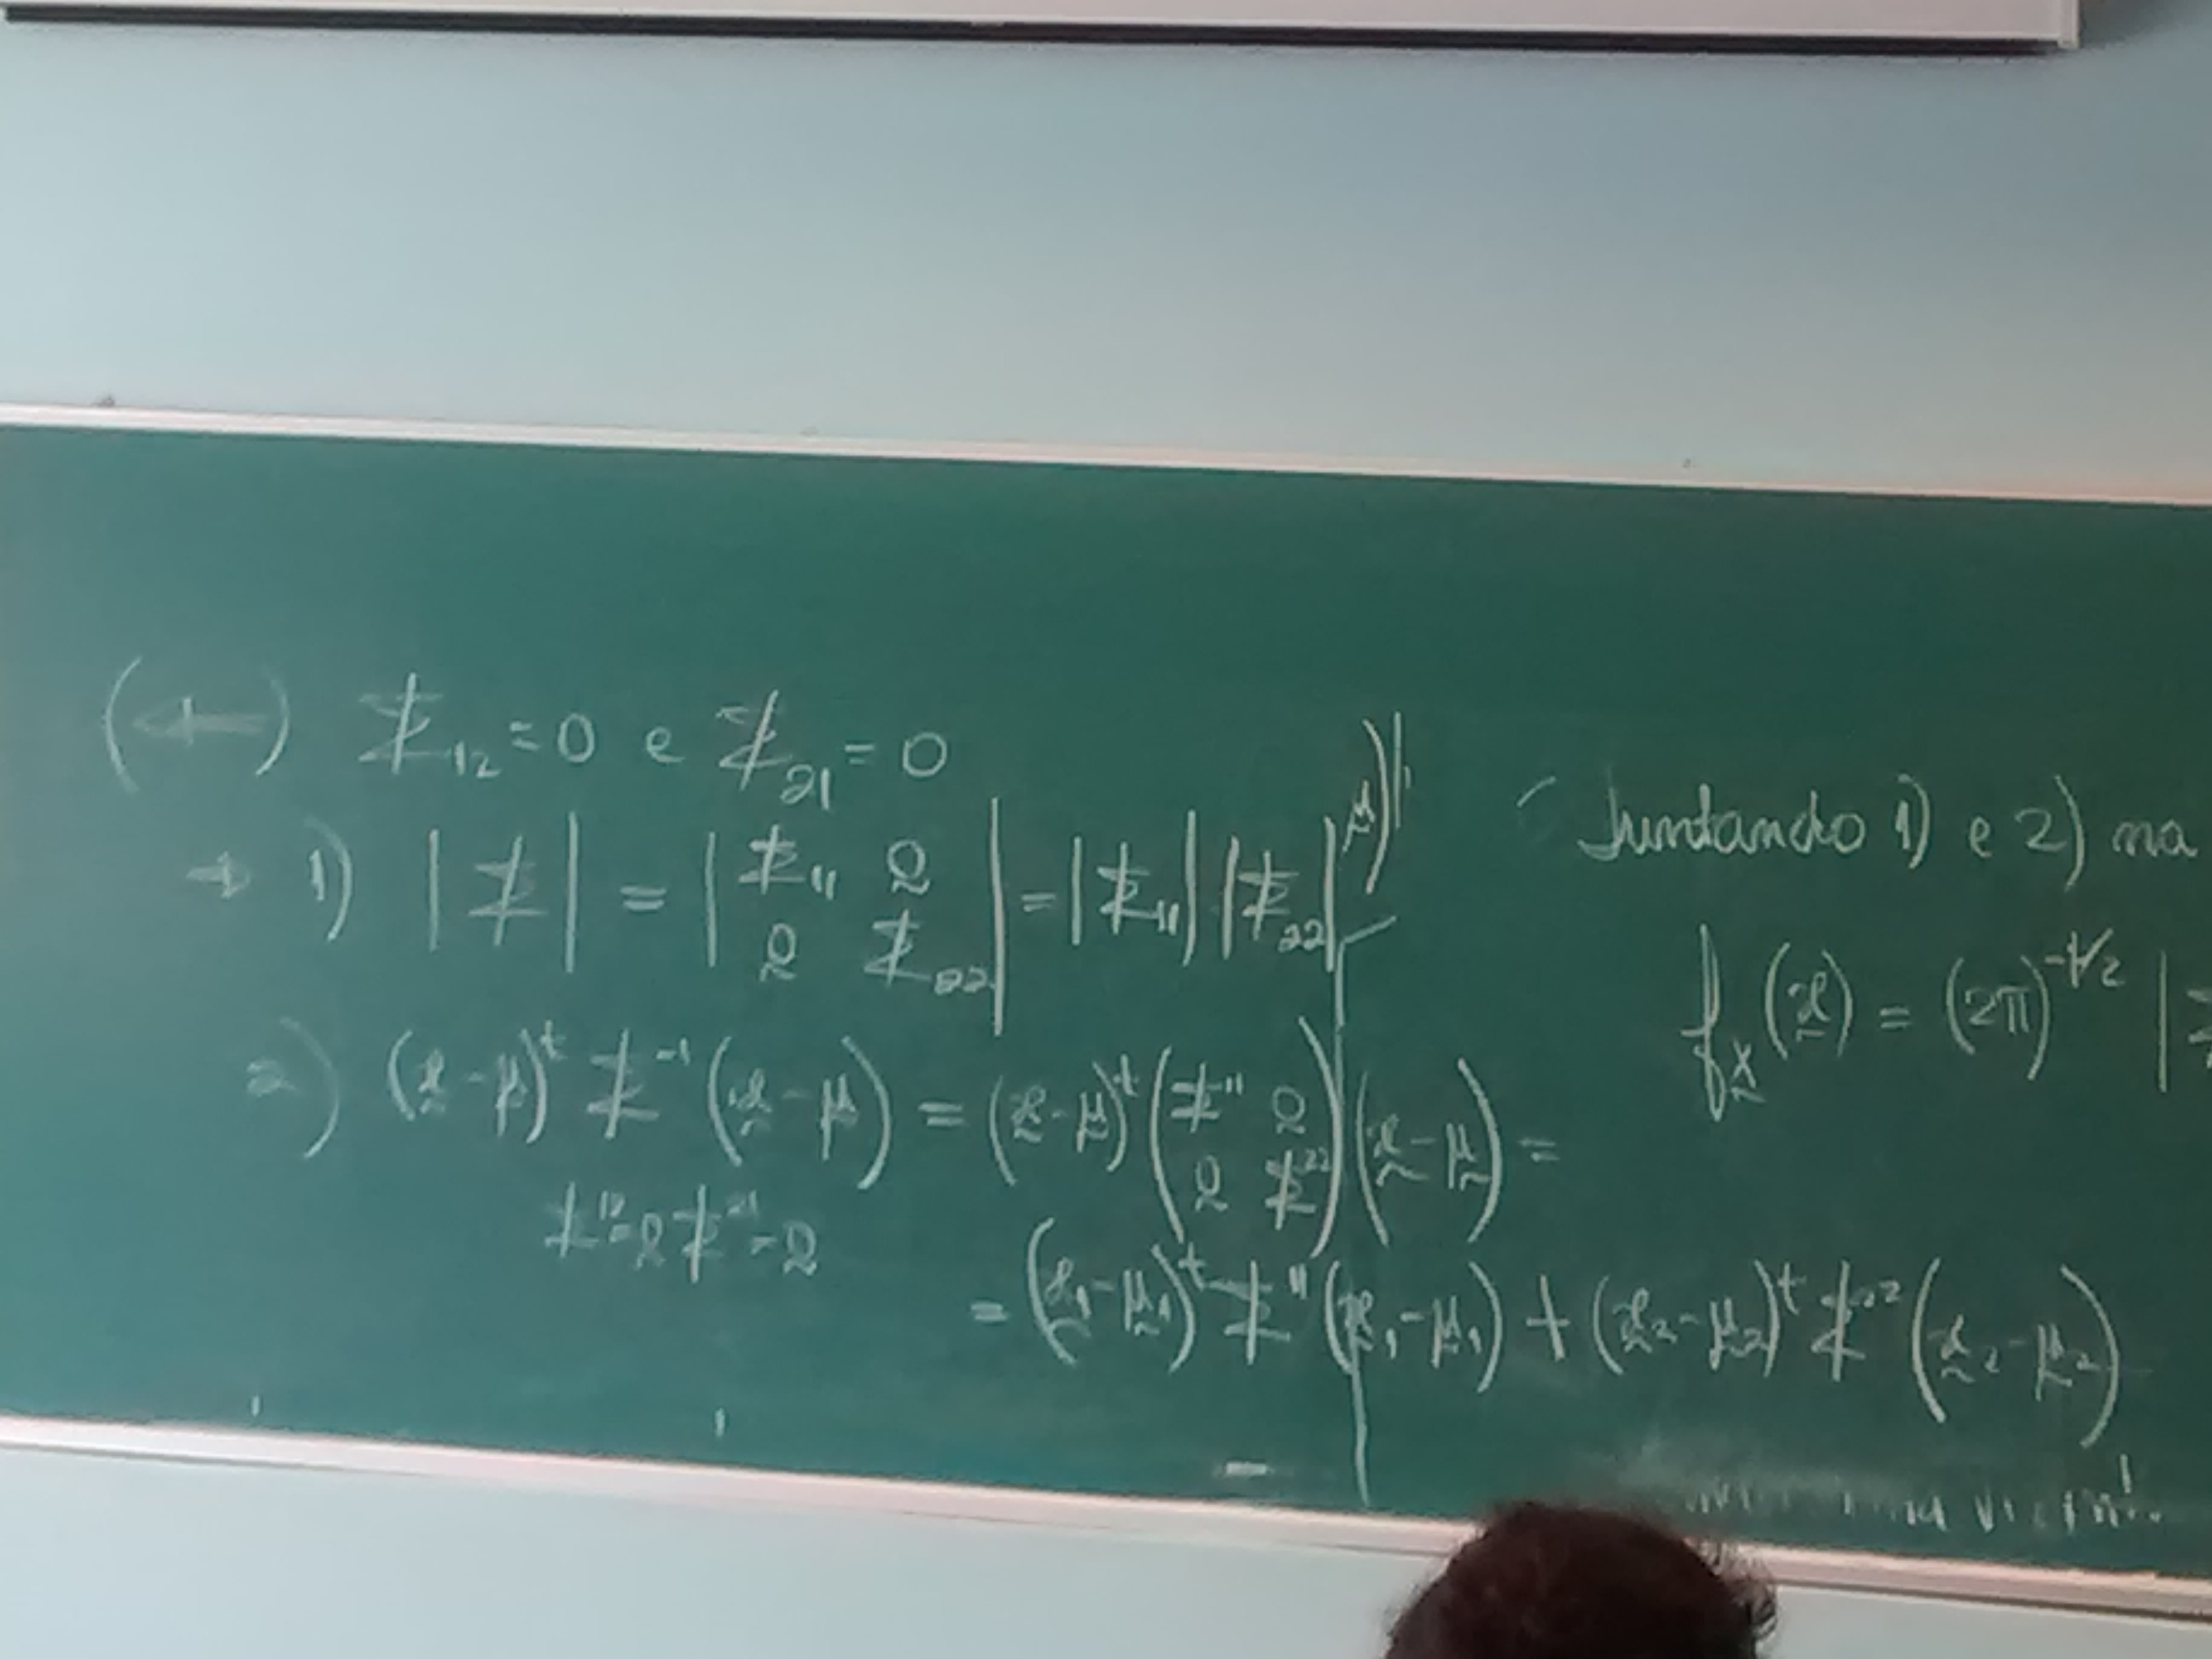 (⇐) Σ₁₂ = 0 e Σ₂₁ = 0
→ 1) |Σ| = |Σ₁₁ 0̰ ; 0̰ Σ₂₂| = |Σ₁₁| |Σ₂₂|
2) (x̰-μ̰)ᵗ Σ⁻¹ (x̰-μ̰) = (x̰-μ̰)ᵗ (Σ¹¹ 0̰ ; 0̰ Σ²²) (x̰-μ̰) =
Σ¹²=0̰ Σ²¹=0̰
= (x̰₁-μ̰₁)ᵗ Σ¹¹ (x̰₁-μ̰₁) + (x̰₂-μ̰₂)ᵗ Σ²² (x̰₂-μ̰₂)
μ̰)|
Juntando 1) e 2) na
f_X̰ (x̰) = (2π)